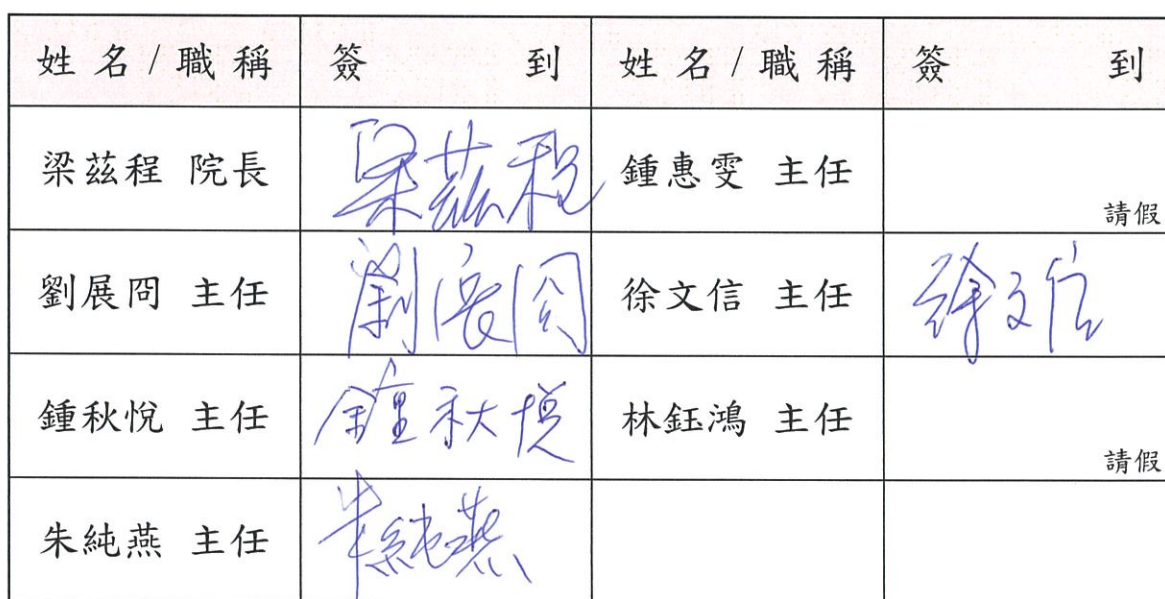 姓名/職稱 簽到 姓名/職稱 簽到
梁茲程 院長 梁茲程 鍾惠雯 主任 請假
劉展冏 主任 劉展冏 徐文信 主任 徐文信
鍾秋悅 主任 鍾秋悅 林鈺鴻 主任 請假
朱純燕 主任 朱純燕